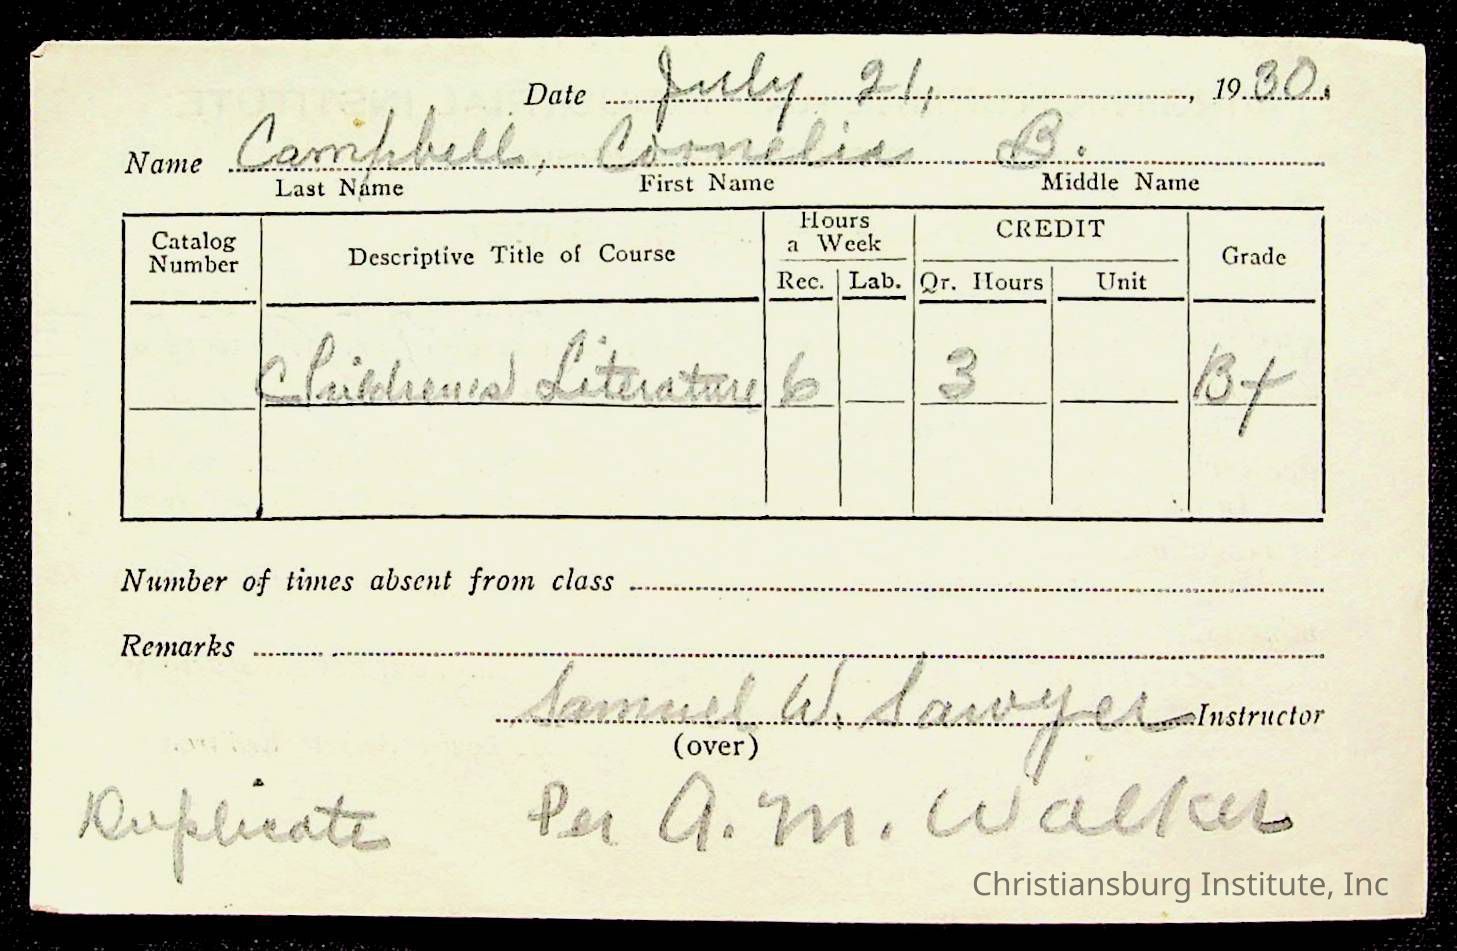 Date July 21, 1930.
Name Campbell, Cornelia B.
Last Name First Name Middle Name
Catalog Number Descriptive Title of Course Hours a Week CREDIT Grade
Rec. Lab. Qr. Hours Unit
Childrens' Literature 6 3 B+
Number of times absent from class
Remarks
Samuel W. Sawyer Instructor
(over)
Duplicate Per A. M. Walker
Christiansburg Institute, Inc